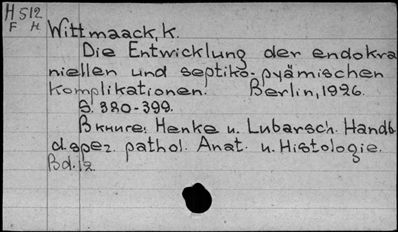 H 512
F H
Wittmaack, K.
Die Entwicklung der endokra
niellen und septiko-pyämischen
Komplikationen. Berlin, 1926.
S. 380-399.
В книге: Henke u. Lubarsch. Handb.
d. spez. pathol. Anat. u. Histologie.
Bd. 12.